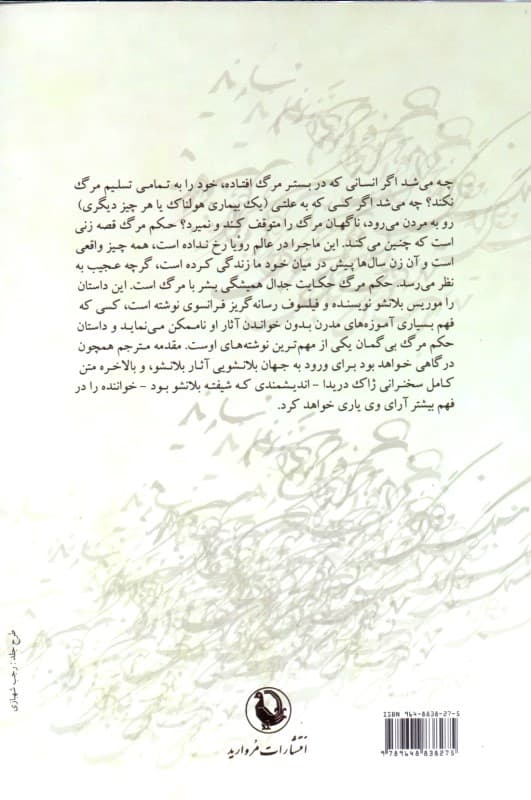 چه می‌شد اگر انسانی که در بستر مرگ افتاده، خود را به تمامی تسلیم مرگ
نکند؟ چه می‌شد اگر کسی که به علتی (یک بیماری هولناک یا هر چیز دیگری)
رو به مردن می‌رود، ناگهان مرگ را متوقف کند و نمیرد؟ حکم مرگ قصه زنی
است که چنین می‌کند. این ماجرا در عالم رویا رخ نداده است، همه چیز واقعی
است و آن زن سال‌ها پیش در میان خود ما زندگی کرده است، گرچه عجیب به
نظر می‌رسد. حکم مرگ حکایت جدال همیشگی بشر با مرگ است. این داستان
را موریس بلانشو نویسنده و فیلسوف رسانه‌گریز فرانسوی نوشته است، کسی که
فهم بسیاری آموزه‌های مدرن بدون خواندن آثار او ناممکن می‌نماید و داستان
حکم مرگ بی‌گمان یکی از مهم‌ترین نوشته‌های اوست. مقدمه مترجم همچون
درگاهی خواهد بود برای ورود به جهان بلانشویی آثار بلانشو، و بالاخره متن
کامل سخنرانی ژاک دریدا - اندیشمندی که شیفته بلانشو بود - خواننده را در
فهم بیشتر آرای وی یاری خواهد کرد.
طرح جلد: رجب شهبازی
انتشارات مُروارید
ISBN 964-8838-27-5
9 789648 838275